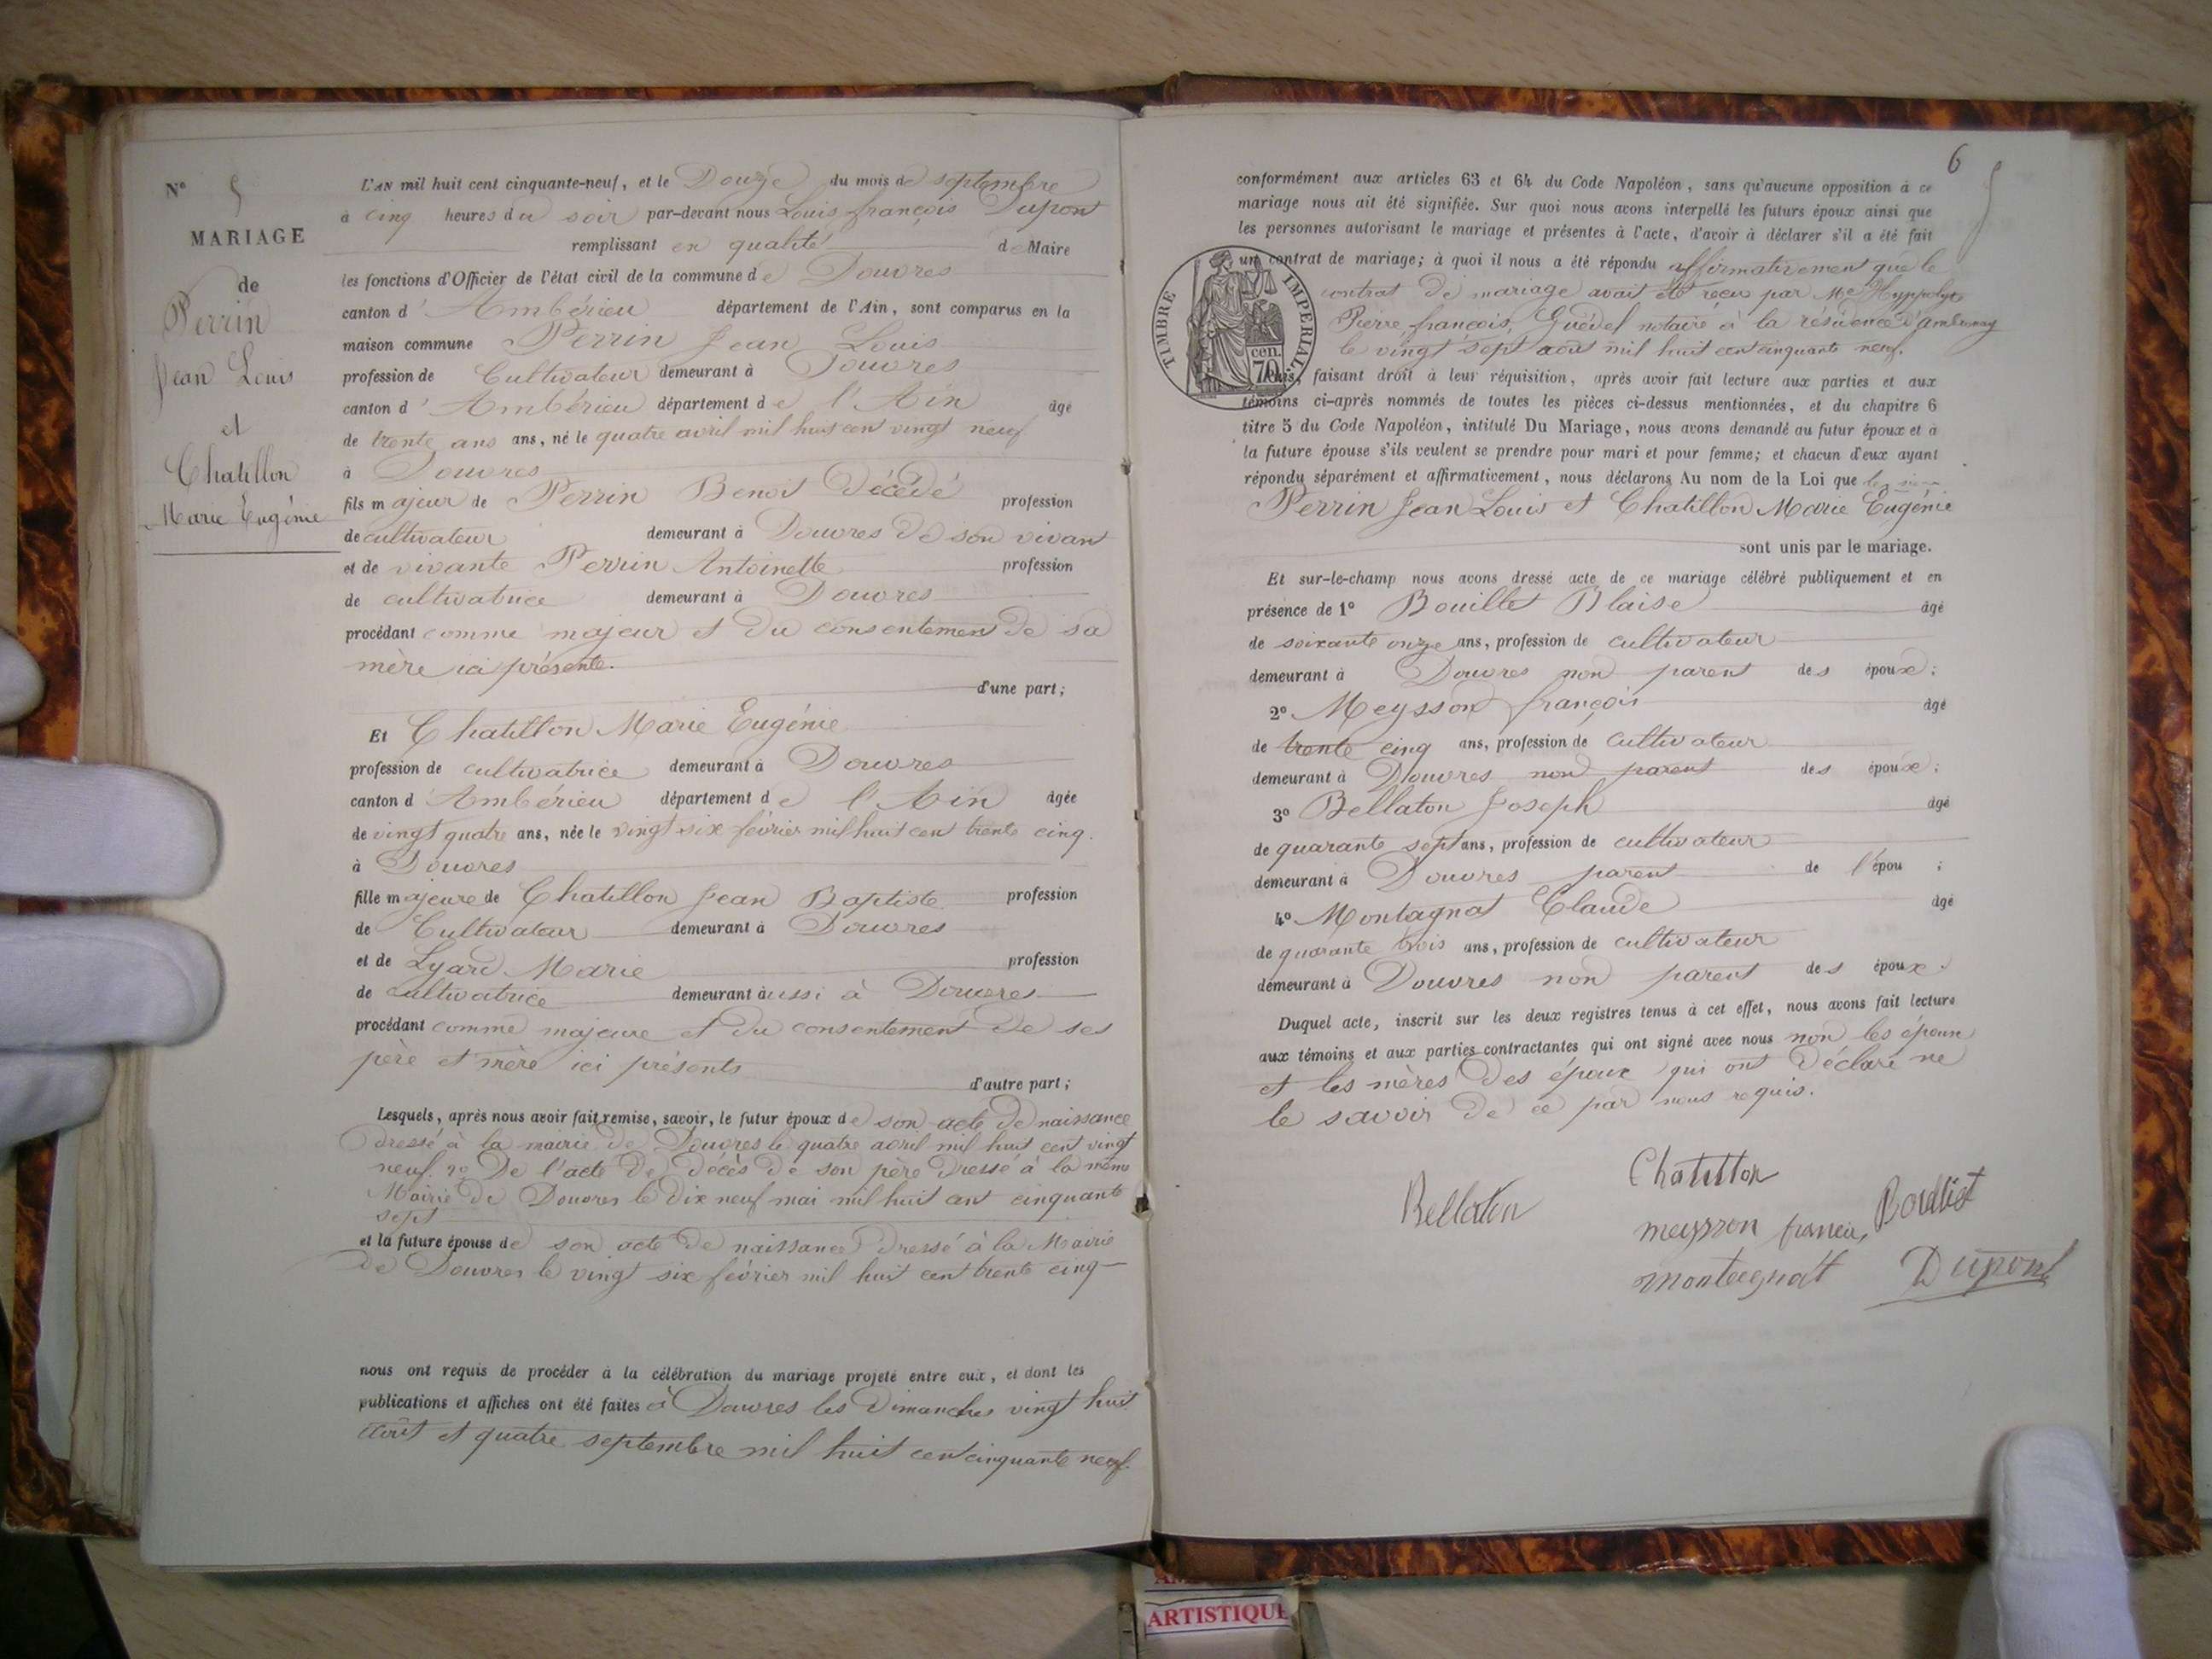 N° 5
MARIAGE
de
Perrin
Jean Louis
et
Chatillon
Marie Eugénie
L'AN mil huit cent cinquante-neuf, et le Douze du mois de septembre
à cinq heures du soir par-devant nous Louis françois Dupont
remplissant en qualité de Maire
les fonctions d'Officier de l'état civil de la commune de Douvres
canton d'Ambérieu département de l'Ain, sont comparus en la
maison commune Perrin Jean Louis
profession de Cultivateur demeurant à Douvres
canton d'Ambérieu département de l'Ain âgé
de trente ans ans, né le quatre avril mil huit cent vingt neuf
à Douvres
fils majeur de Perrin Benoit Décédé profession
de cultivateur demeurant à Douvres de son vivant
et de vivante Perrin Antoinette profession
de cultivatrice demeurant à Douvres
procédant comme majeur et du consentement de sa
mère ici présente.
d'une part;
Et Chatillon Marie Eugénie
profession de cultivatrice demeurant à Douvres
canton d'Ambérieu département de l'Ain âgée
de vingt quatre ans, née le vingt six février mil huit cent trente cinq.
à Douvres
fille majeure de Chatillon Jean Baptiste profession
de Cultivateur demeurant à Douvres
et de Lyard Marie profession
de cultivatrice demeurant aussi à Douvres
procédant comme majeure et du consentement de ses
père et mère ici présents
d'autre part;
Lesquels, après nous avoir fait remise, savoir, le futur époux de son acte de naissance
dressé à la mairie de Douvres le quatre avril mil huit cent vingt
neuf 2° De l'acte de décès de son père dressé à la même
Mairie de Douvres le dix neuf mai mil huit cent cinquante
sept
et la future épouse de son acte de naissance dressé à la Mairie
de Douvres le vingt six février mil huit cent trente cinq
nous ont requis de procéder à la célébration du mariage projeté entre eux, et dont les
publications et affiches ont été faites à Douvres les Dimanches vingt huit
août et quatre septembre mil huit cent cinquante neuf.
6
5
conformément aux articles 63 et 64 du Code Napoléon, sans qu'aucune opposition à ce
mariage nous ait été signifiée. Sur quoi nous avons interpellé les futurs époux ainsi que
les personnes autorisant le mariage et présentes à l'acte, d'avoir à déclarer s'il a été fait
un contrat de mariage; à quoi il nous a été répondu affirmativement que le
contrat de mariage avait été reçu par Me Hyppolyte
Pierre françois, Guédel notaire à la résidence d'ambronay
le vingt sept août mil huit cent cinquante neuf.
TIMBRE IMPERIAL
70 cen.
Puis, faisant droit à leur réquisition, après avoir fait lecture aux parties et aux
témoins ci-après nommés de toutes les pièces ci-dessus mentionnées, et du chapitre 6
titre 5 du Code Napoléon, intitulé Du Mariage, nous avons demandé au futur époux et à
la future épouse s'ils veulent se prendre pour mari et pour femme; et chacun d'eux ayant
répondu séparément et affirmativement, nous déclarons Au nom de la Loi que les
Perrin Jean Louis et Chatillon Marie Eugénie
sont unis par le mariage.
Et sur-le-champ nous avons dressé acte de ce mariage célébré publiquement et en
présence de 1° Bouillet Blaise âgé
de soixante onze ans, profession de cultivateur
demeurant à Douvres non parent des époux;
2° Meysson françois âgé
de trente cinq ans, profession de cultivateur
demeurant à Douvres non parent des époux;
3° Bellaton Joseph âgé
de quarante sept ans, profession de cultivateur
demeurant à Douvres parent de l'épou ;
4° Montagnat Claude âgé
de quarante trois ans, profession de cultivateur
demeurant à Douvres non parent des époux.
Duquel acte, inscrit sur les deux registres tenus à cet effet, nous avons fait lecture
aux témoins et aux parties contractantes qui ont signé avec nous non les époux
et les mères des époux qui ont déclaré ne
le savoir de ce par nous requis.
Chatillon
Bellaton
Bouillet
meysson francois
montagnat
Dupont
ARTISTIQUE